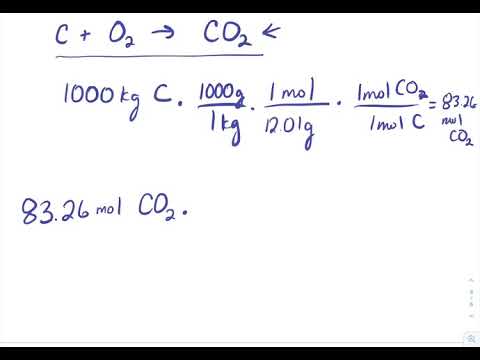 C + O₂ → CO₂ ←
1000 kg C · 1000g/1kg · 1 mol/12.01g · 1 mol CO₂/1 mol C = 83.26 mol CO₂
83.26 mol CO₂ ·